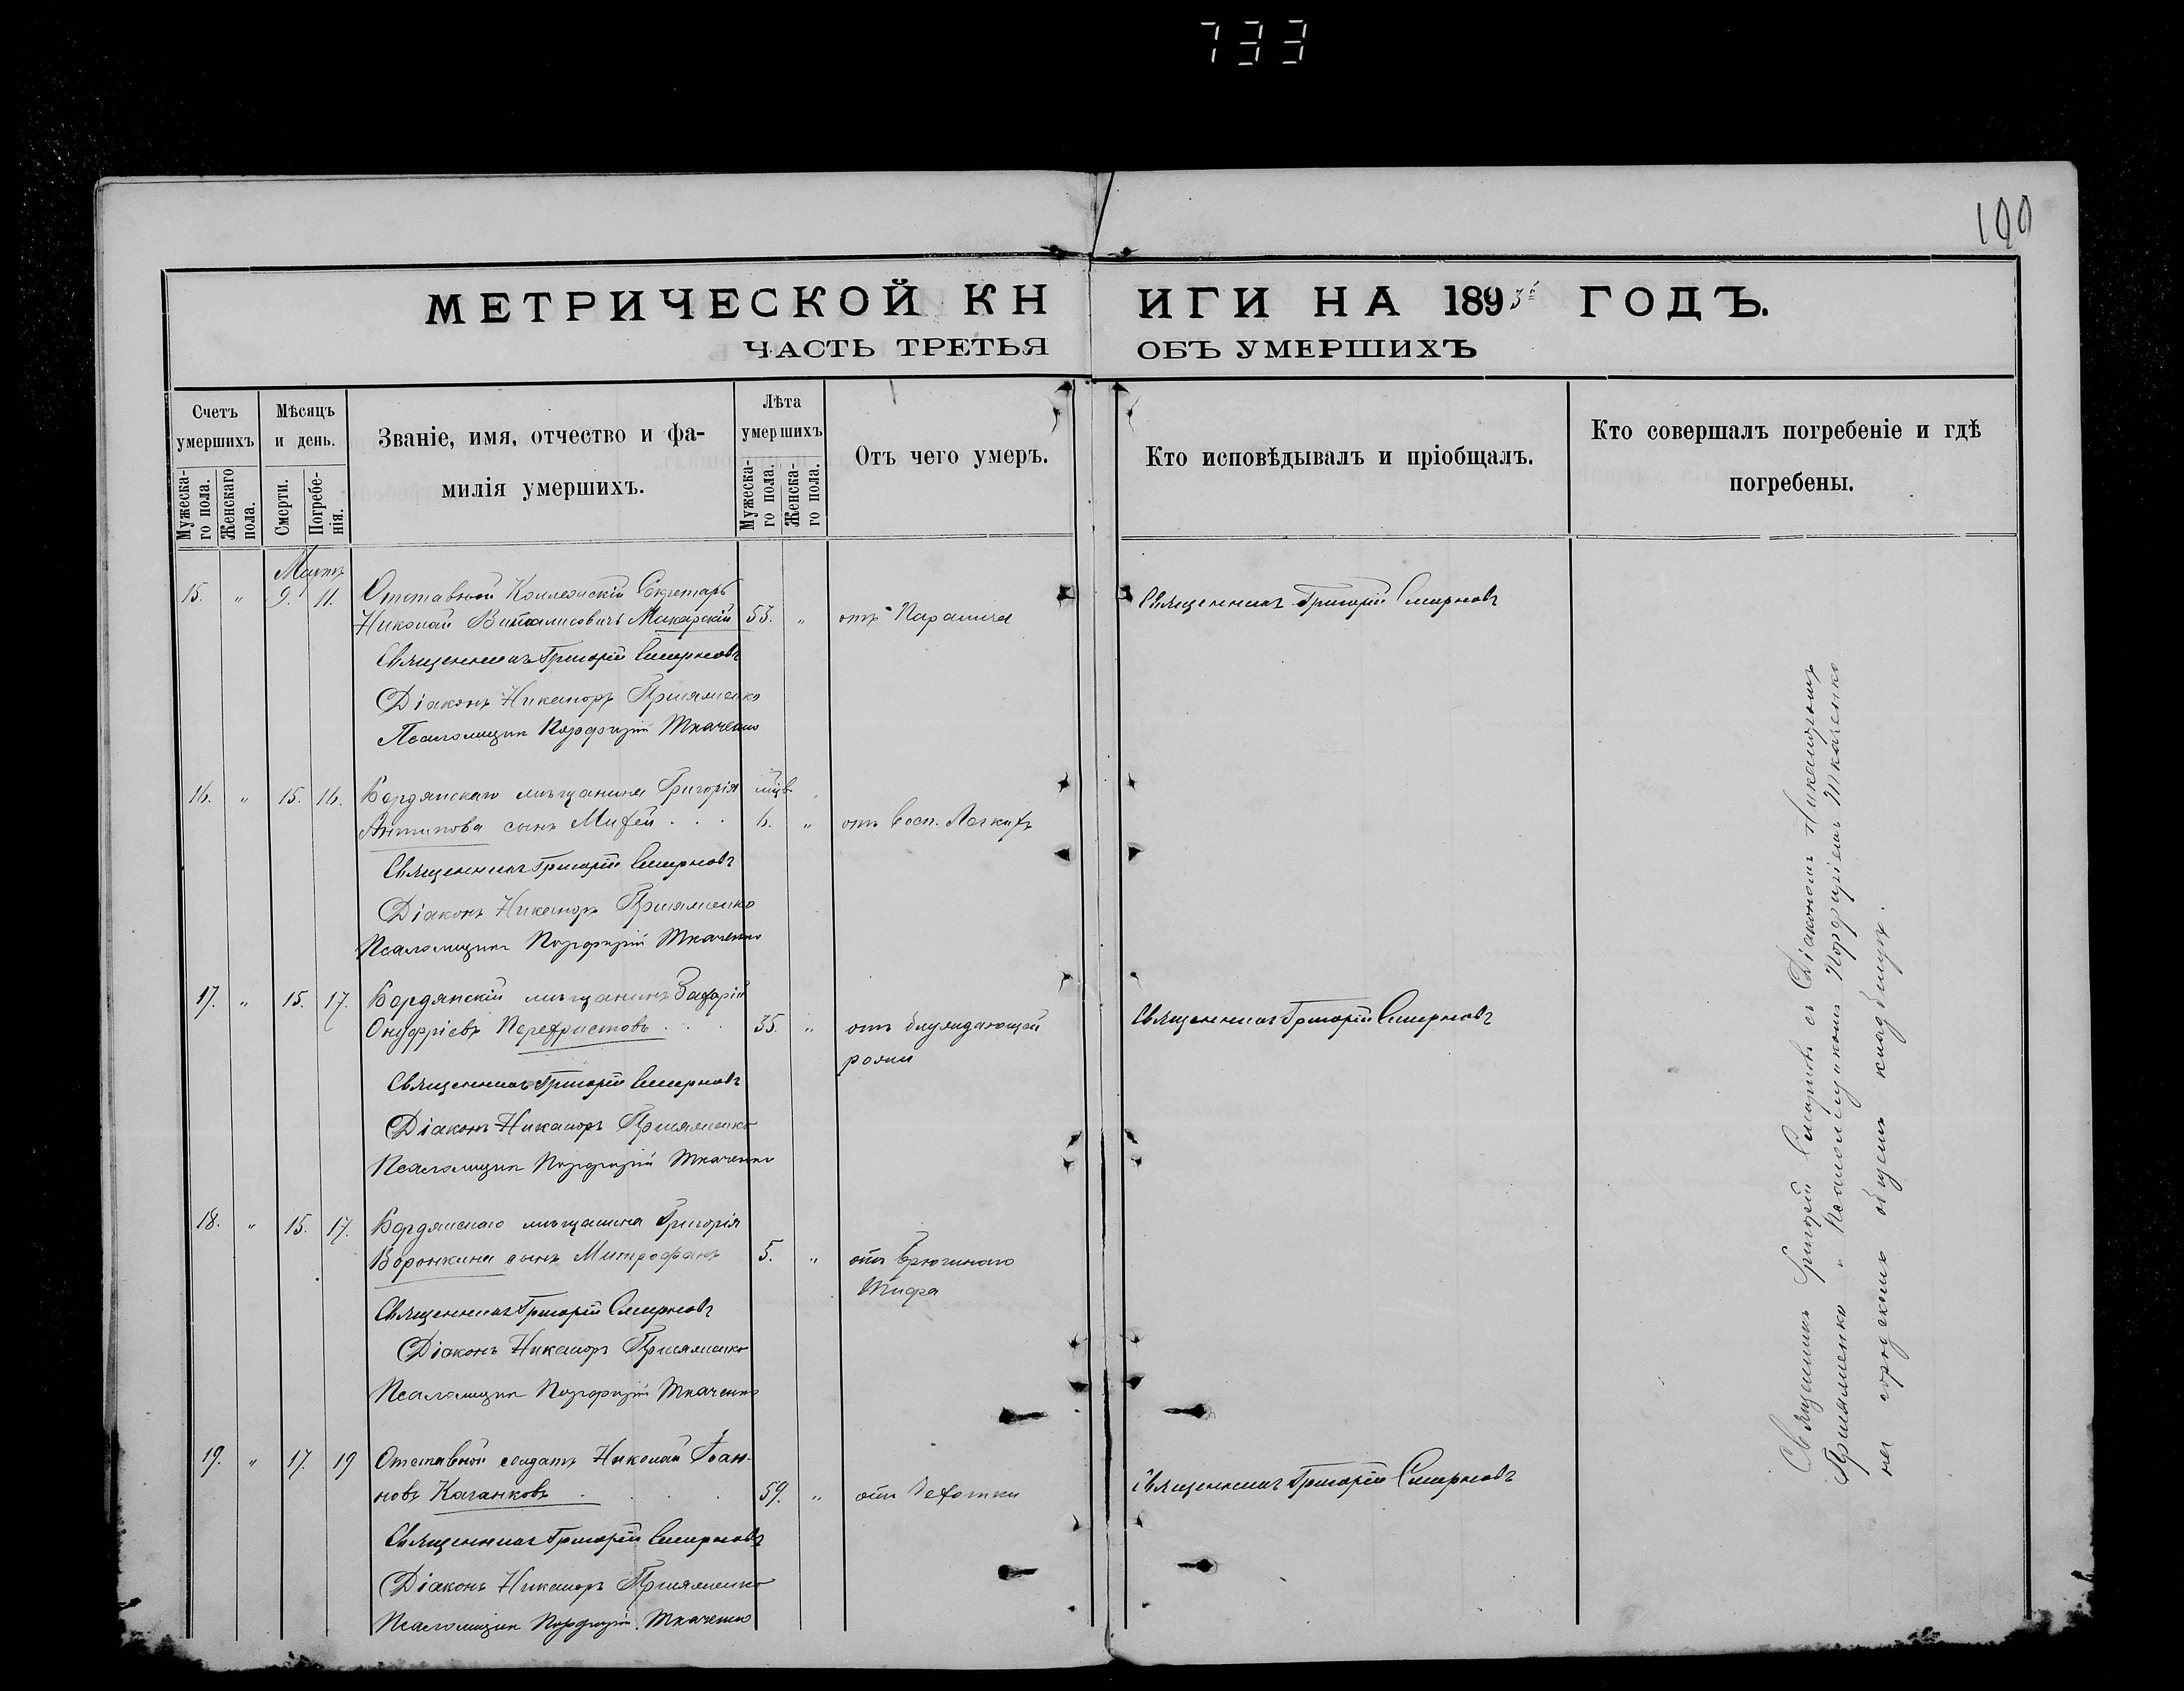 733
100
МЕТРИЧЕСКОЙ КНИГИ НА 1893й ГОДЪ.
ЧАСТЬ ТРЕТЬЯ ОБЪ УМЕРШИХЪ
Счетъ умершихъ
Мужеска-го пола.
Женскаго пола.
Мѣсяцъ и день.
Смерти.
Погребе-нія.
Званіе, имя, отчество и фа-
милія умершихъ.
Лѣта умершихъ
Мужеска-го пола.
Женска-го пола.
Отъ чего умеръ.
Кто исповѣдывалъ и пріобщалъ.
Кто совершалъ погребеніе и гдѣ
погребены.
Мартъ
15. " 9. 11. Отставной Коллежскій Секретарь
Николай Виталисовичъ Макарскій 53. " отъ Паралича
Священникъ Григорій Смирновъ
Священникъ Григорій Смирновъ
Діаконъ Никаноръ Присяменко
Псаломщикъ Порфирій Ткаченко
16. " 15. 16. Бердянскаго мѣщанина Григорія мѣс.
Антипова сынъ Михей . . . 6. " отъ Восп. Легкихъ
Священникъ Григорій Смирновъ
Діаконъ Никаноръ Присяменко
Псаломщикъ Порфирій Ткаченко
17. " 15. 17. Бердянскій мѣщанинъ Захарій
Онуфріевъ Перехристовъ . . . 35. " отъ блуждающей
рожи
Священникъ Григорій Смирновъ
Священникъ Григорій Смирновъ
Діаконъ Никаноръ Присяменко
Псаломщикъ Порфирій Ткаченко
18. " 15. 17. Бердянскаго мѣщанина Григорія
Воронкина сынъ Митрофанъ 5. " отъ брюшнаго
Тифа
Священникъ Григорій Смирновъ
Діаконъ Никаноръ Присяменко
Псаломщикъ Порфирій Ткаченко
19. " 17. 19 Отставной солдатъ Николай Іоан-
новъ Каганковъ . . . . 59. " отъ Чехотки
Священникъ Григорій Смирновъ
Священникъ Григорій Смирновъ
Діаконъ Никаноръ Присяменко
Псаломщикъ Порфирій Ткаченко
Священникъ Григорій Смирновъ съ Діакономъ Никаноромъ
Присяменко и Псаломщикомъ Порфиріемъ Ткаченко
на городскомъ общемъ кладбищѣ.